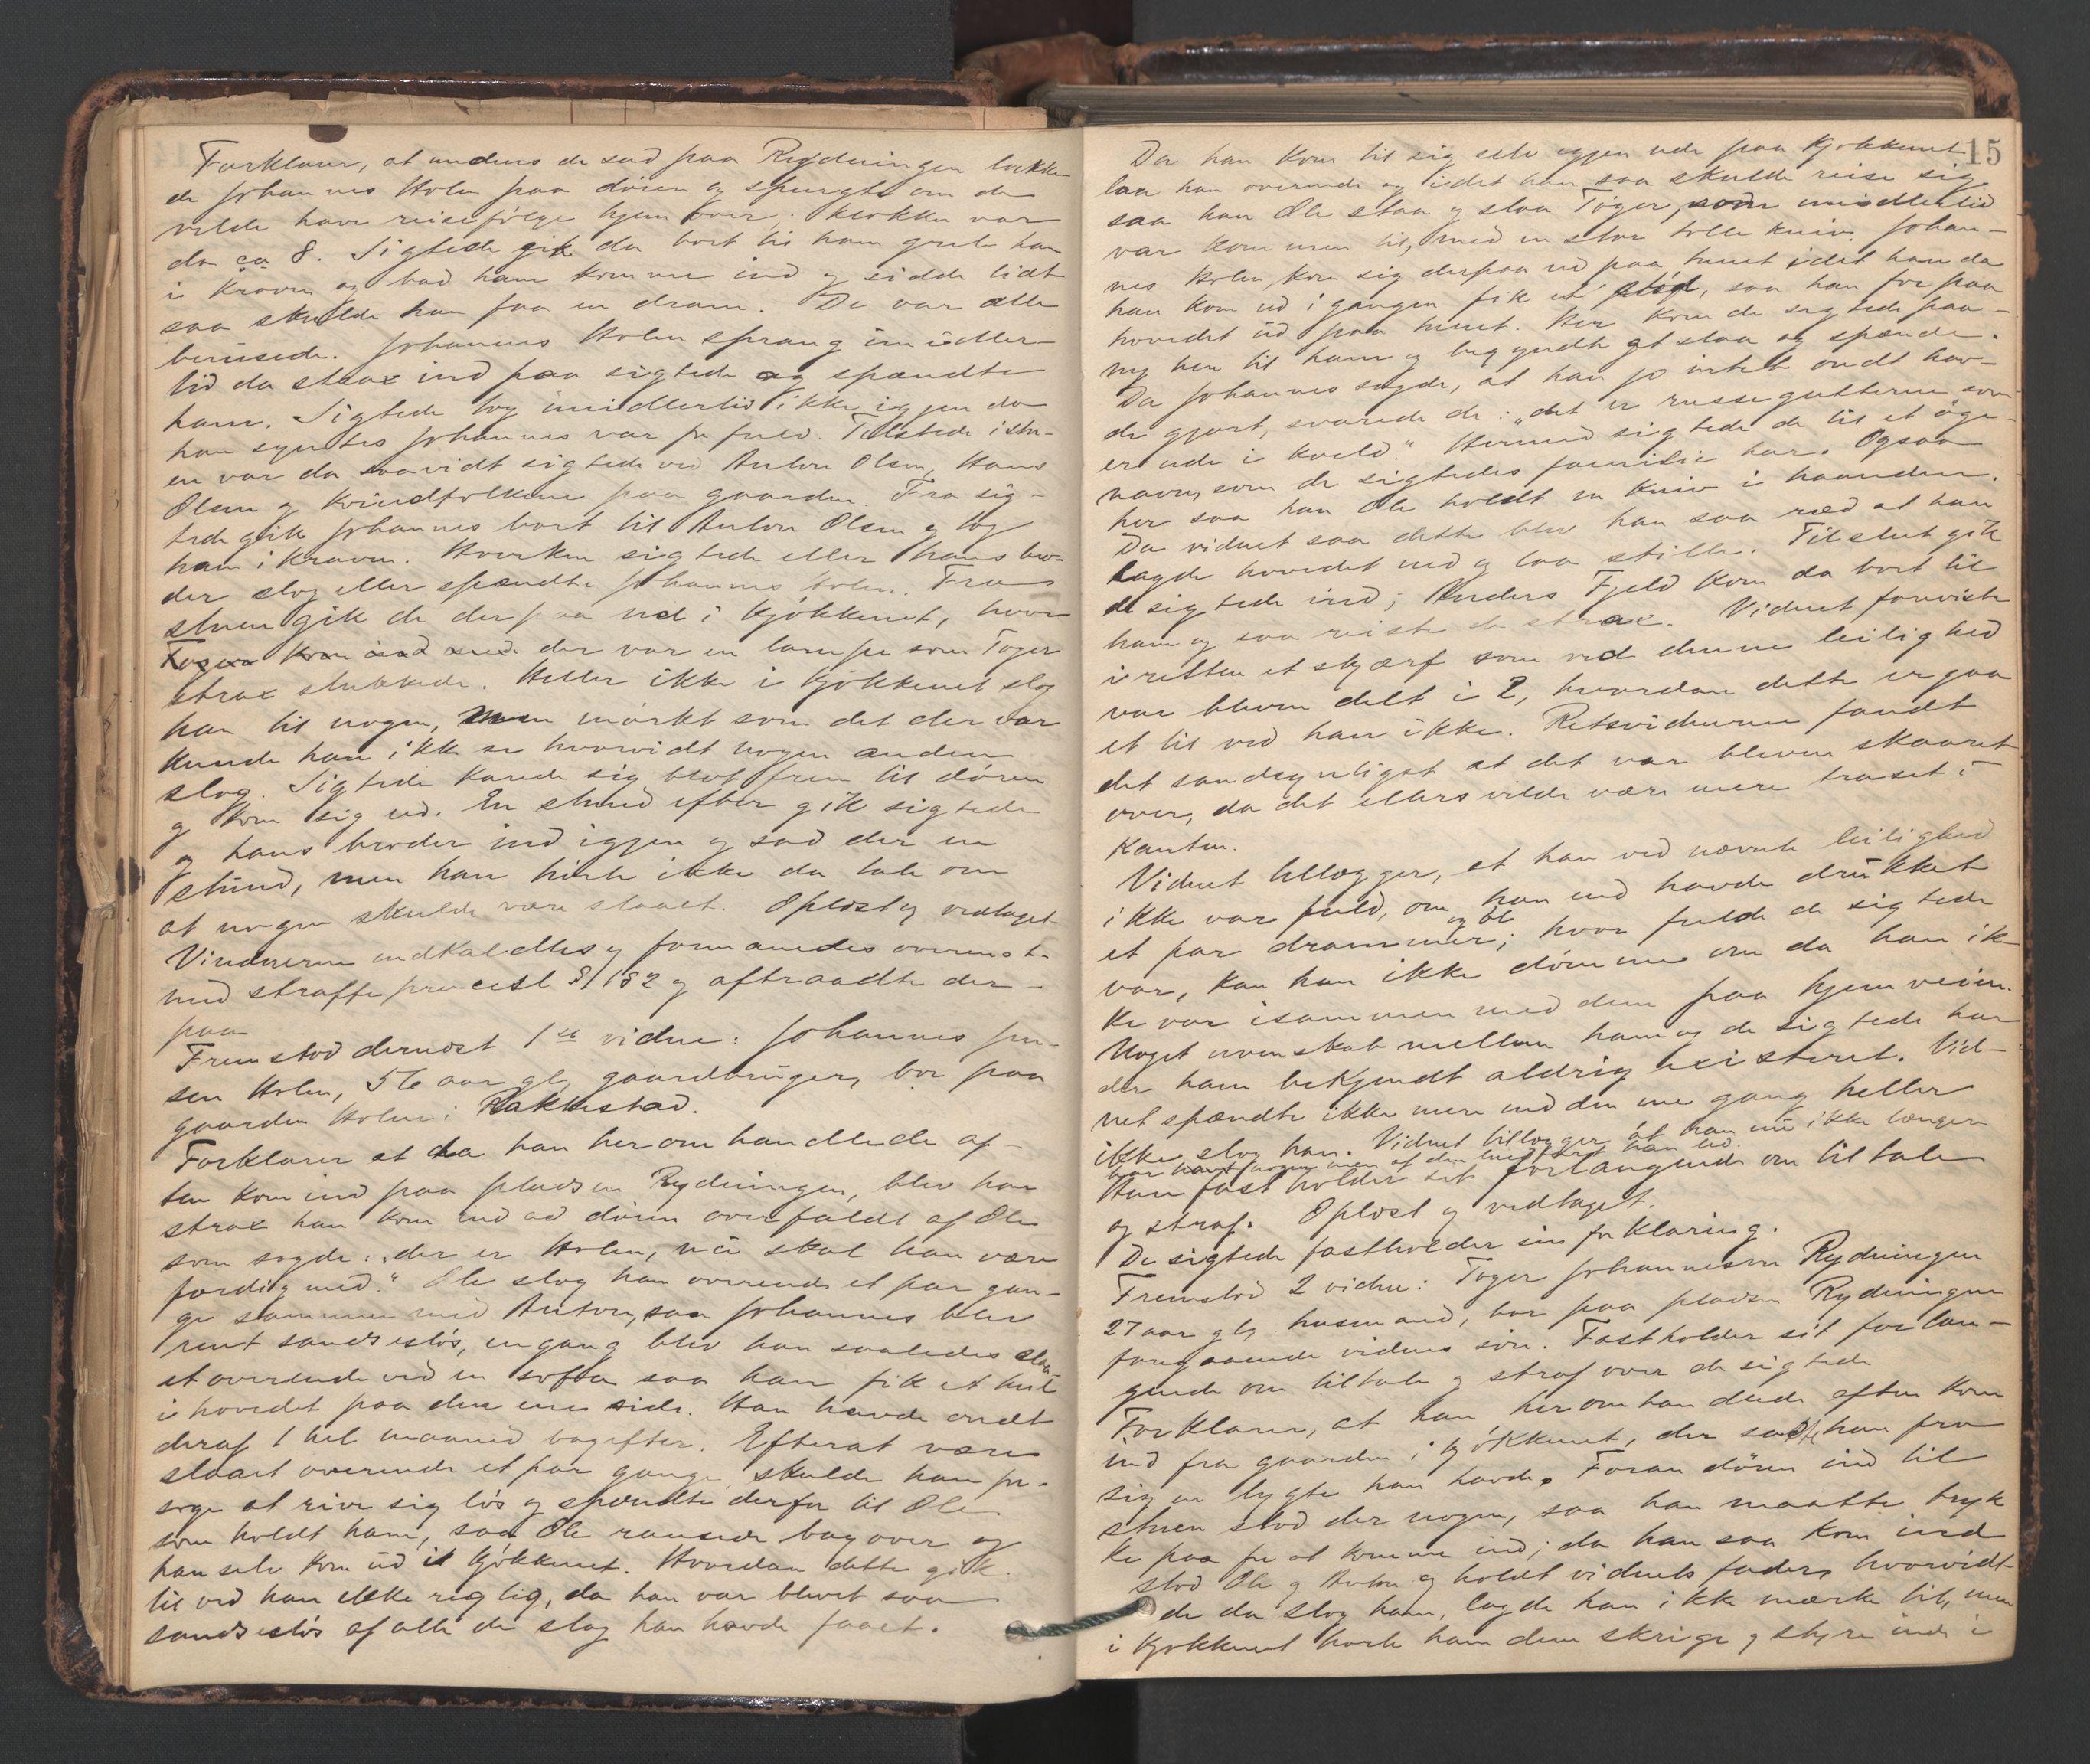 Forklarer, at medens de sad paa Rydningen bankke-
de Johannes Holen paa døren og spurgte om de
vilde have reisefølge hjemover; klokken var
da ca 8. Sigtede gik da bort til ham greb ham
i kraven og bad ham komme ind og sidde lidt
saa skulde han faa en dram. De var alle
berusede. Johannes Holen sprang imidler-
tid da strax ind paa sigtede og spændte
ham. Sigtede tog imidlertid ikke igjen da
han syntes Johannes var for fuld. Tilstede i stu-
en var da saavidt sigtede ved Anton Olsen, Hans
Olsen og kvindfolkene paa gaarden. Fra sig-
tede gik Johannes bort til Anton Olsen og tog
ham i kraven. Hverken sigtede eller hans bro-
der slog eller spændte Johannes Holen. Fra
stuen gik de derpaa ud i kjøkkenet, hvor
der var en lampe som Toger
strax slukkede. Heller ikke i kjøkkenet slog
han til nogen, men mørkt som det der var
kunde han ikke se hvorvidt nogen anden
slog. Sigtede kavde sig blot frem til døren
og kom sig ud. En stund efter gik sigtede
og hans broder ind igjen og sad der en
stund, men han hørte ikke da tale om
at nogen skulde være slaaet. Oplæst og vedtaget
Vidnerne indkaldtes og formanedes overenst.
med straffeprocesl § 182 og aftraadte der-
paa
Fremstod dernæst 1ste vidne: Johannes Jen-
sen Holen, 56 aar gl, gaardbruger, bor paa
gaarden Holen i Rakkestad.
Forklarer at da han heromhandlede af-
ten kom ind paa pladsen Rydningen, blev han
strax han kom ind ad døren overfaldt af Ole
som sagde: „der er Holen, nu skal han være
færdig med." Ole slog ham overende et par gan-
ge sammen med Anton, saa Johannes blev
rent sandsesløs, engang blev han saaledes slaa-
et overende ved en soffa saa han fik et hul
i hovedet paa den ene side. Han havde ondt
deraf 1 hel maaned bagefter. Efterat være
slaaet overende et par gange skulde han for-
søge at rive sig løs og spændte derfor til Ole
som holdt ham, saa Ole ramlede bagover og
han selv kom ud i kjøkkenet. Hvordan dette gik
til ved han ikke rigtig, da han var blevet saa
sandsesløs af alle de slag han havde faaet.
15
Da han kom til sig selv igjen ude paa kjøkkenet
laa han overende og idet han saa skulde reise sig
saa han Ole staa og slaa Toger, som imidlertid
var kommen til, med en stor tollekniv. Johan-
nes Holen kom sig derpaa ud paa tunet idet han da
han kom ud i gangen fik et stød, saa han for paa
hovedet ud paa tunet. Her kom de sigtede paa-
ny hen til ham og begyndte at slaa og spænde.
Da Johannes sagde, at han jo intet ondt hav-
de gjort, svarede de: „det er russegutterne som
er ude i kveld." Hermed sigtede de til et øge-
navn, som de sigtedes familie har. Ogsaa
her saa han Ole holdt en kniv i haanden.
Da vidnet saa dette blev han saa ræd at han
lagde hovedet ned og laa stille. Tilslut gik
de sigtede ind; Anders Fjeld kom da bort til
ham og saa reiste de strax. Vidnet foreviste
i retten et skjærf som ved denne leilighed
var bleven delt i 2, hvordan dette er gaa
et til ved han ikke. Retsvidnerne fandt
det sandsynligst at det var bleven skaaret
over, da det ellers vilde være mere traset i
Kanten.
Vidnet tillægger, at han ved nævnte leilighed
ikke var fuld, om han end havde drukket
et par drammer og øl; hvor fulde de sigtede
var, kan han ikke dømme om da han ik-
ke var isammen med dem paa hjemveien.
Noget uvenskab mellem ham og de sigtede har
der ham bekjendt aldrig existeret. Vid-
net spændte ikke mere end den ene gang heller
ikke slog han. Vidnet tillægger, at han nu ikke længere
har havt nogen men af den
Han fastholder sit forlangende om tiltale
og straf. Oplæst og vedtaget.
De sigtede fastholder sin forklaring.
Fremstod 2 vidne: Toger Johannesen Rydningen
27 aar gl, husmand, bor paa pladsen Rydningen
foregaaende vidnes søn. Fastholder sit forlan-
gende om tiltale og straf over de sigtede
Forklarer, at han heromhandlede aften kom
ind fra gaarden i kjøkkenet, der satte han fra
sig en lygte han havde. Foran døren ind til
stuen stod der nogen, saa han maatte tryk
ke paa for at komme ind; da han saa kom ind
stod Ole og Anton og holdt vidnets fader, hvorvidt
de da slog ham, lagde han ikke mærke til, men
i kjøkkenet hørte han dem skrige og styre inde i